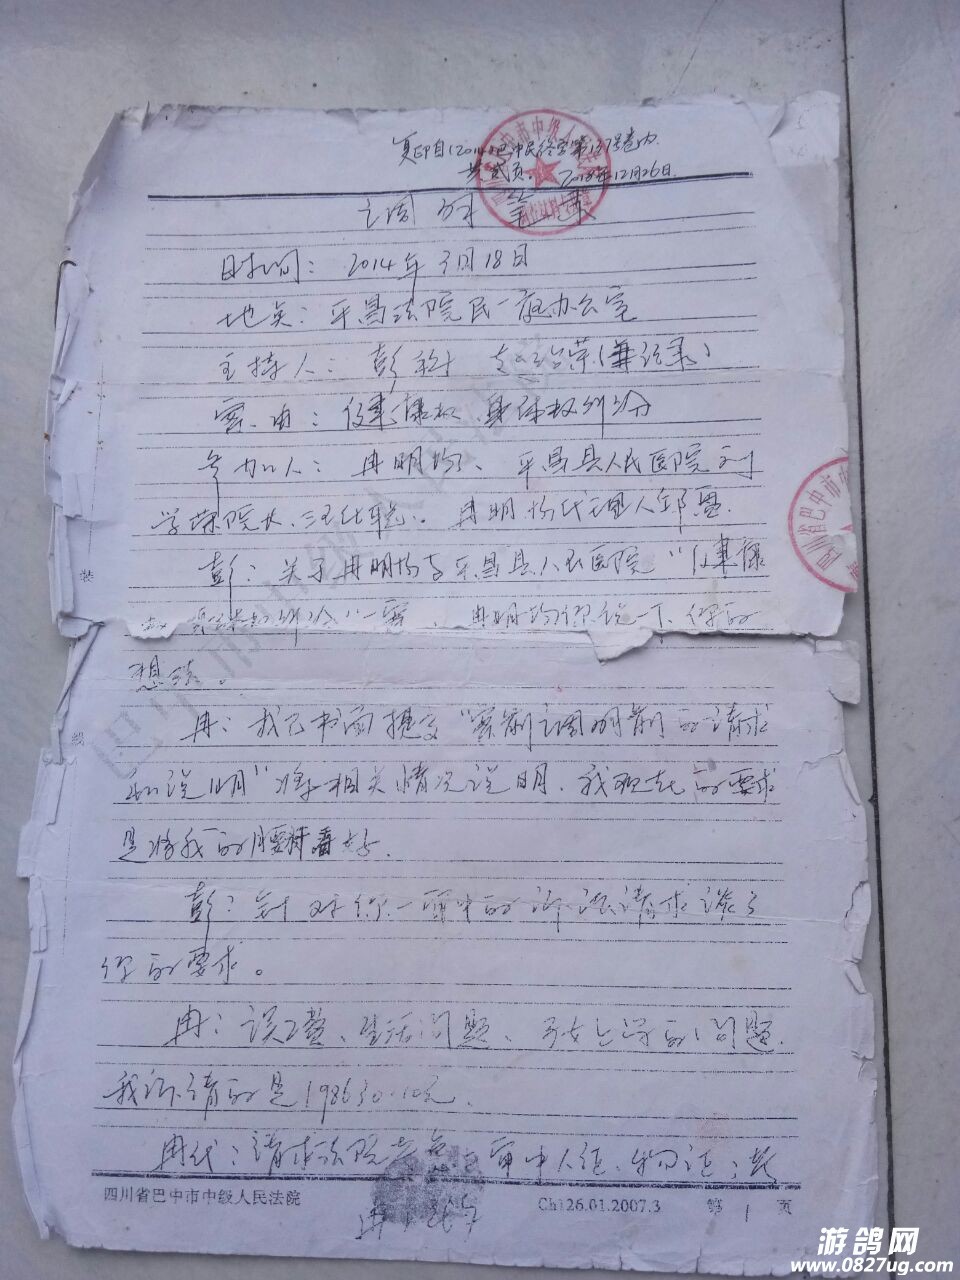 复印自(2014)巴中民终字第137号卷内
共贰页。2018年12月26日
调解笔录
时间：2014年3月18日
地点：平昌法院民一庭办公室
主持人：彭 (兼记录)
案由：健康权、身体权纠纷
参加人：冉明均、平昌县人民医院刘
学荣院长、冉明均代理人
彭：关于冉明均与平昌县人民医院"健康
纠纷"一案，冉明均你说一下你的
想法。
冉：我已书面提交"案前调解前的请求
和说明"将相关情况说明，我现在的要求
是将我的腰杆看好。
彭：针对你一审中的诉讼请求谈了
你的要求。
冉：误工费、生活问题、子女上学的问题。
我诉请的是198630.10元。
冉代：请求法院 审中人证、物证：
四川省巴中市中级人民法院 Ch126.01.2007.3 第1页
装
线
四川省巴中市中
游鸽网
www.0827ug.com